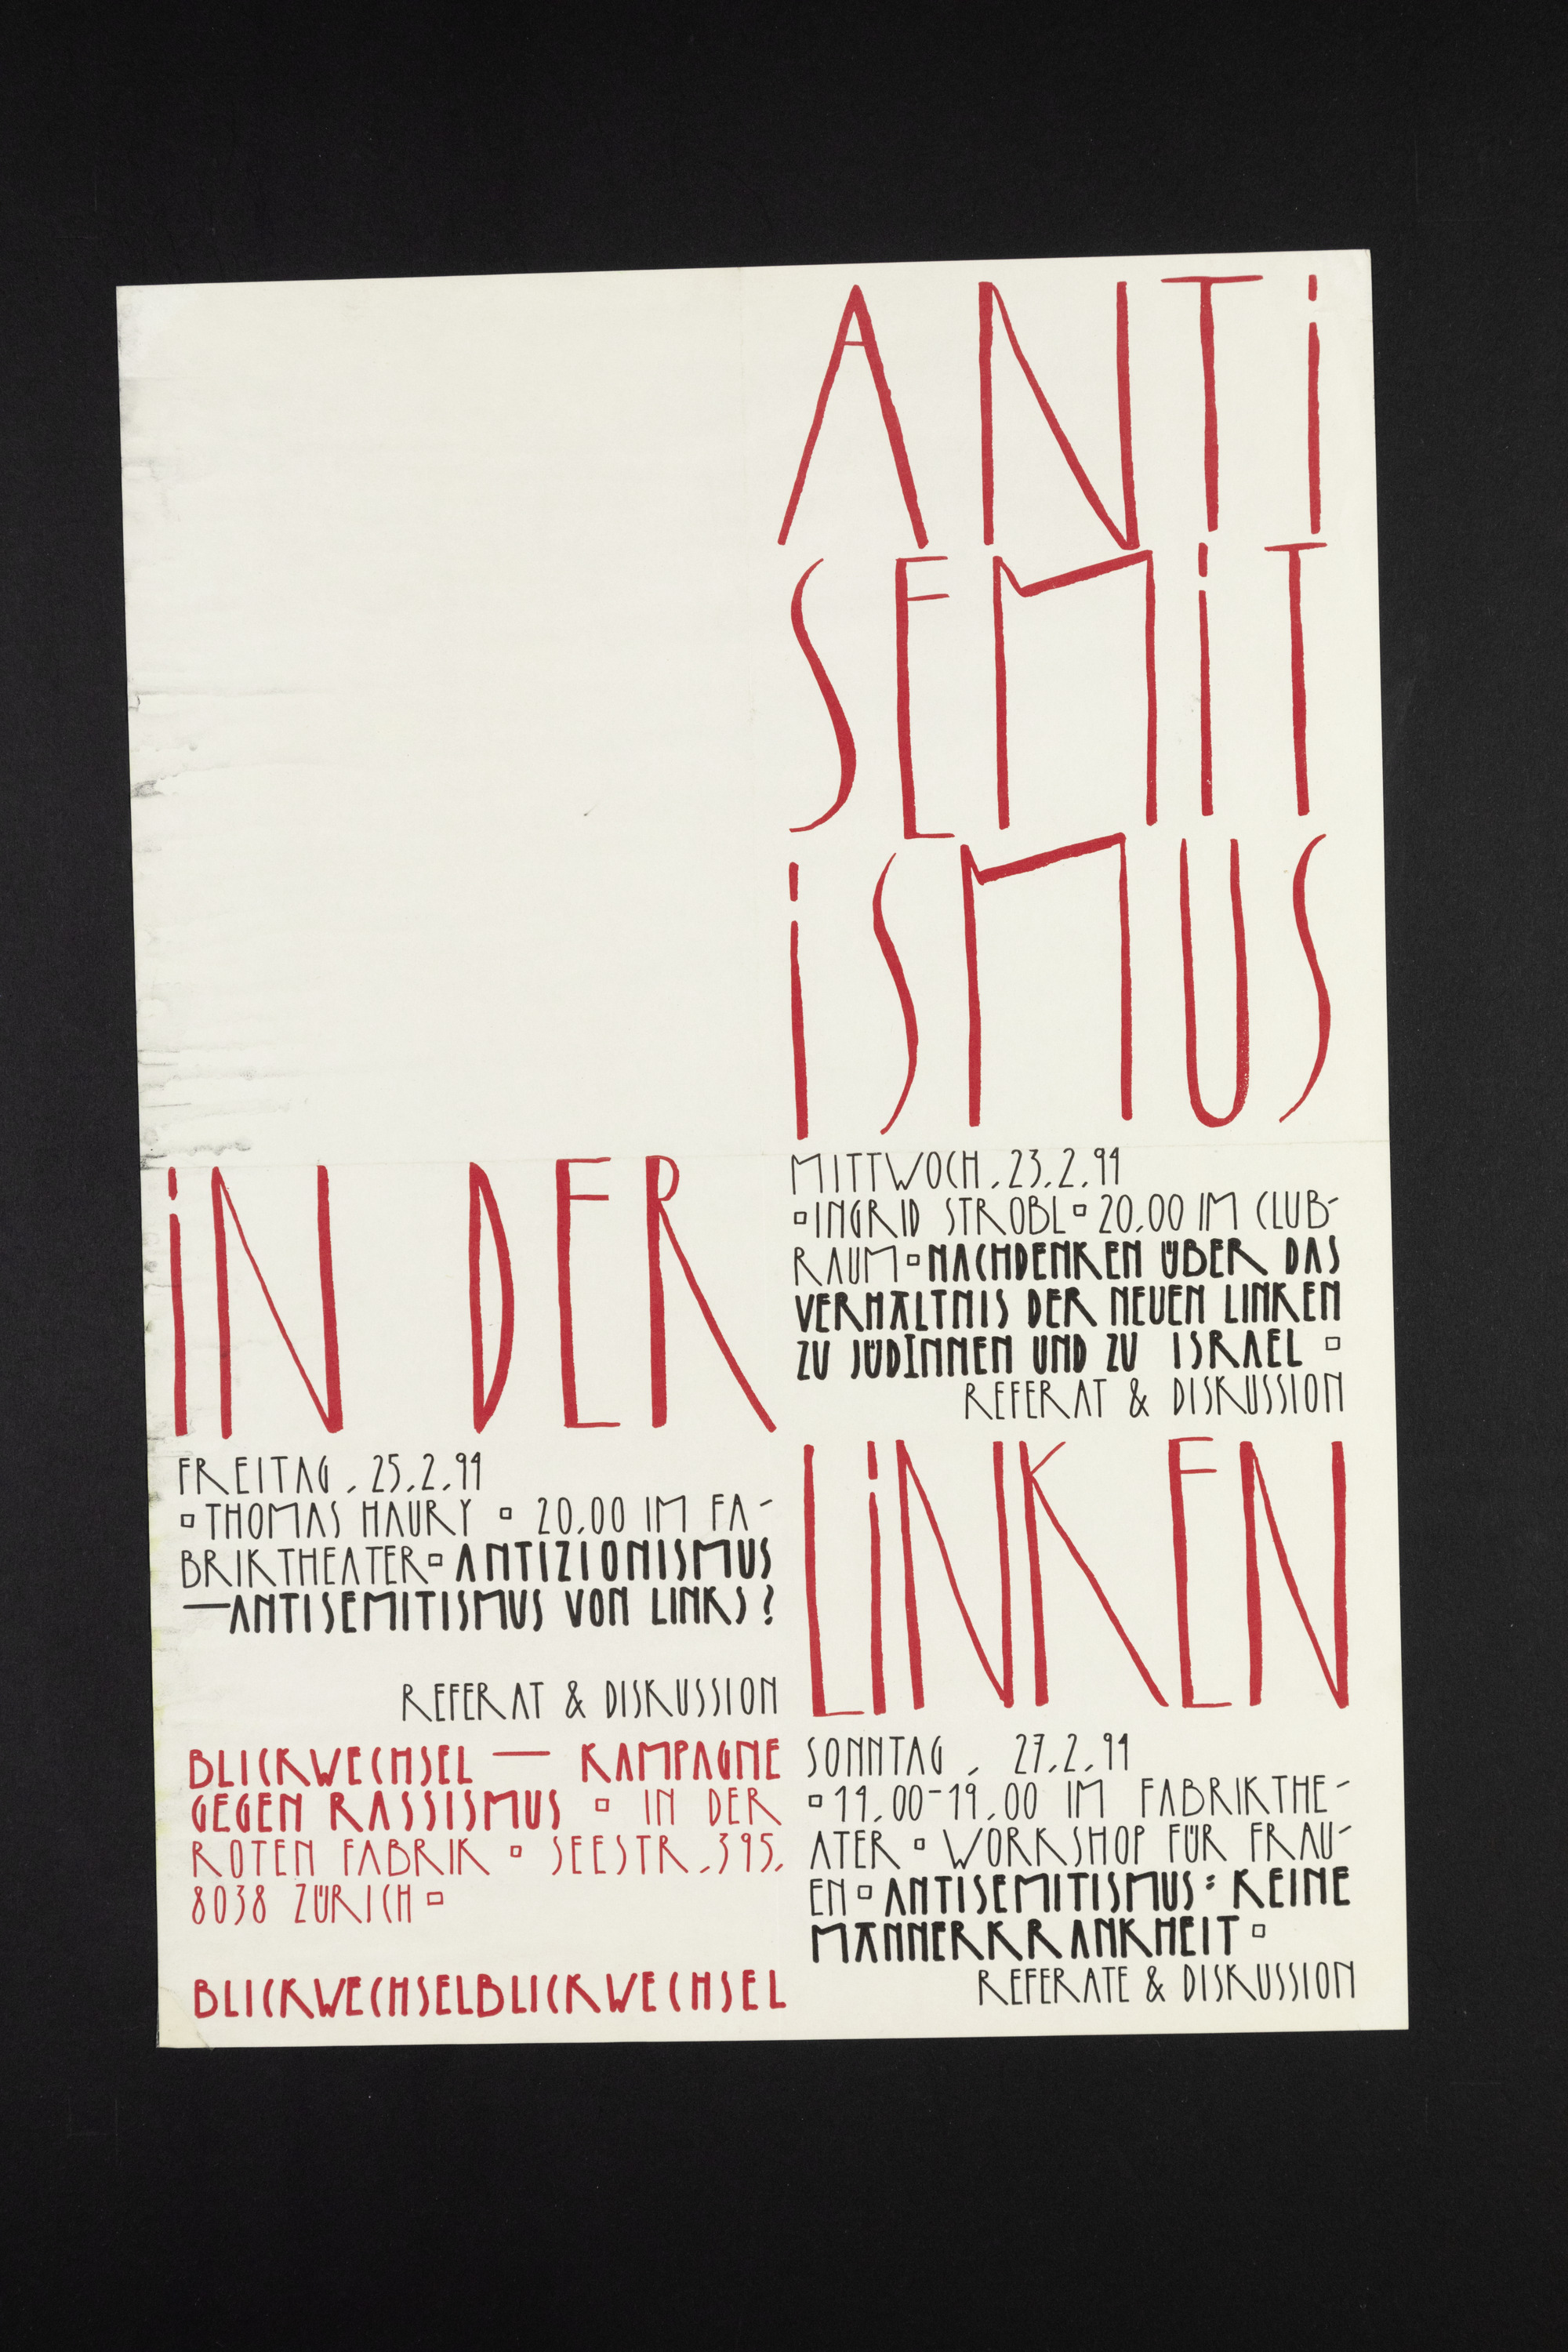 ANTi
SEMiT
iSMUS
iN DER
MITTWOCH, 23.2.94
▫INGRID STROBL▫20.00 IM CLUB-
RAUM▫NACHDENKEN ÜBER DAS
VERHÄLTNIS DER NEUEN LINKEN
ZU JÜDINNEN UND ZU ISRAEL ▫
REFERAT & DISKUSSION
FREITAG, 25.2.94
▫THOMAS HAURY ▫ 20.00 IM FA-
BRIKTHEATER▫ANTIZIONISMUS
—ANTISEMITISMUS VON LINKS?
REFERAT & DISKUSSION
LiNKEN
SONNTAG, 27.2.94
▫14.00-19.00 IM FABRIKTHE-
ATER ▫ WORKSHOP FÜR FRAU-
EN▫ANTISEMITISMUS: KEINE
MÄNNERKRANKHEIT▫
REFERATE & DISKUSSION
BLICKWECHSEL — KAMPAGNE
GEGEN RASSISMUS ▫ IN DER
ROTEN FABRIK ▫ SEESTR. 395,
8038 ZÜRICH▫
BLICKWECHSELBLICKWECHSEL